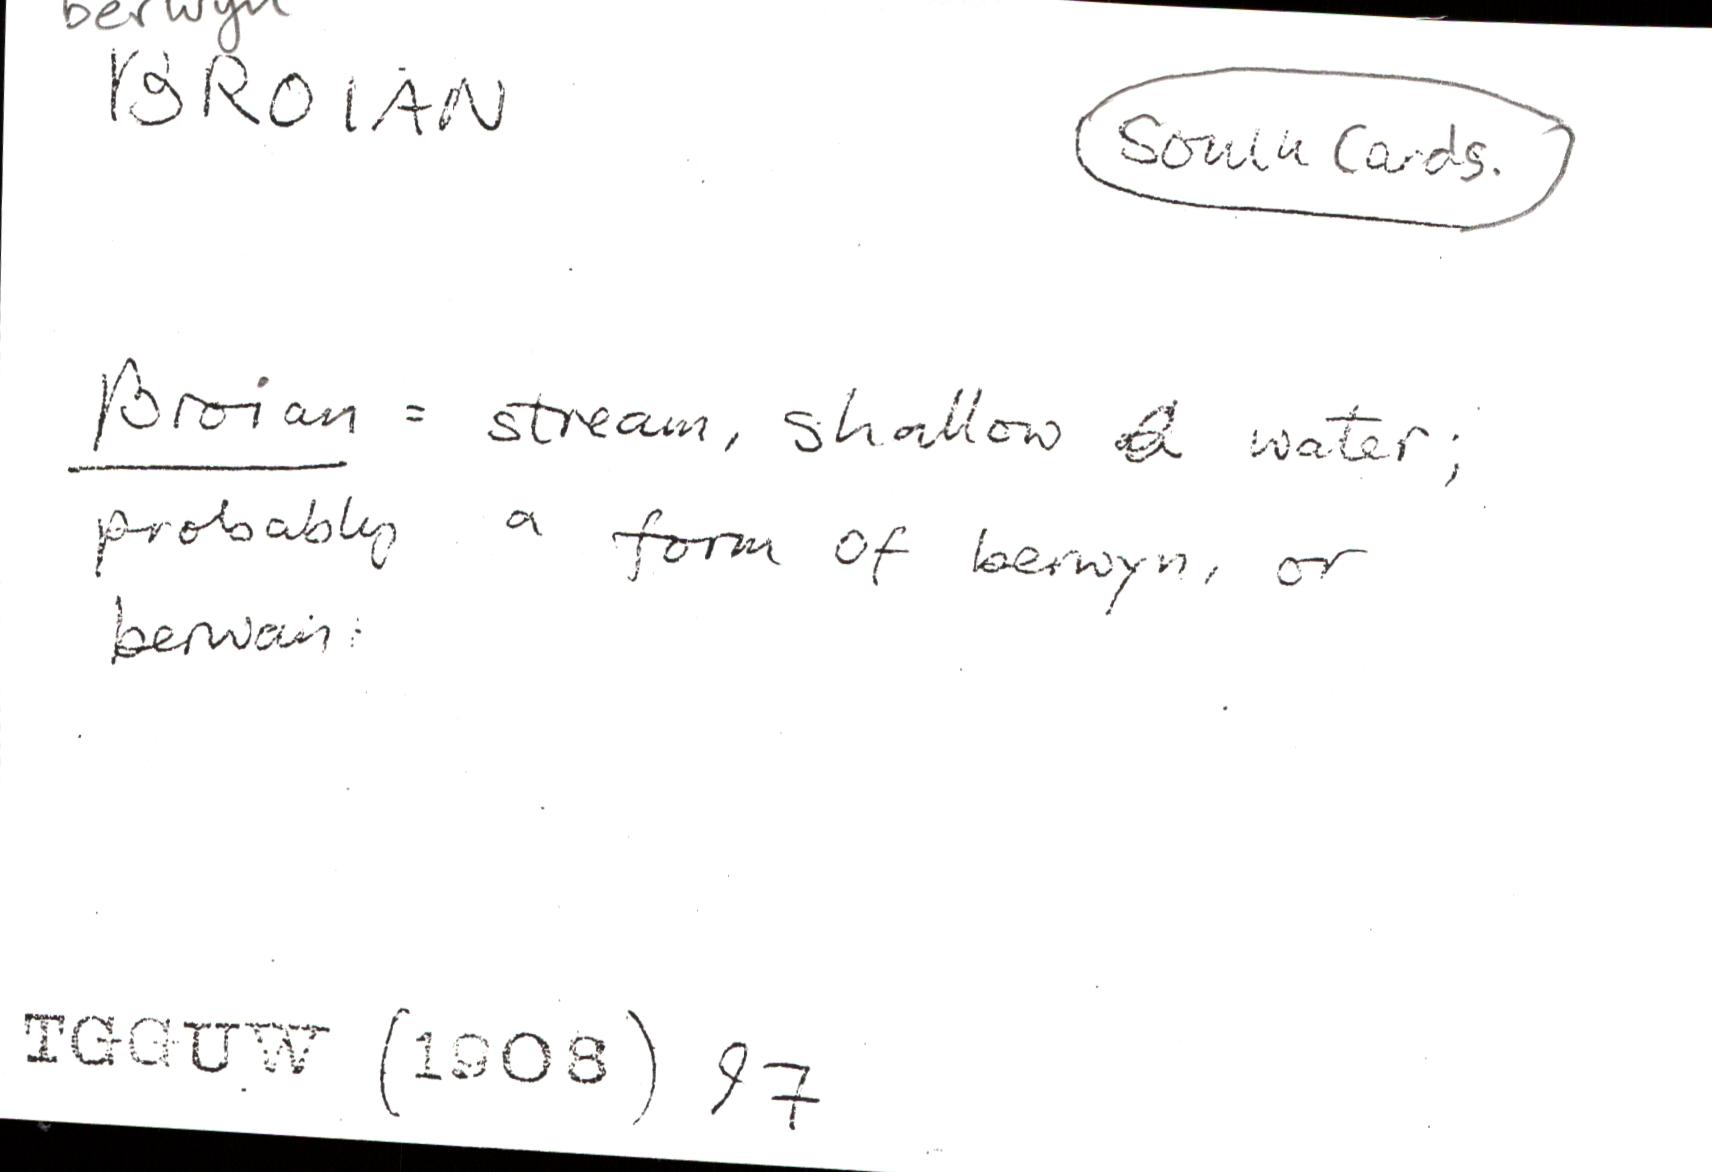 berwyn
BROIAN
South Cards.
Broian = stream, shallow & water;
probably a form of berwyn, or
berwain:
TGGUW (1908) 97